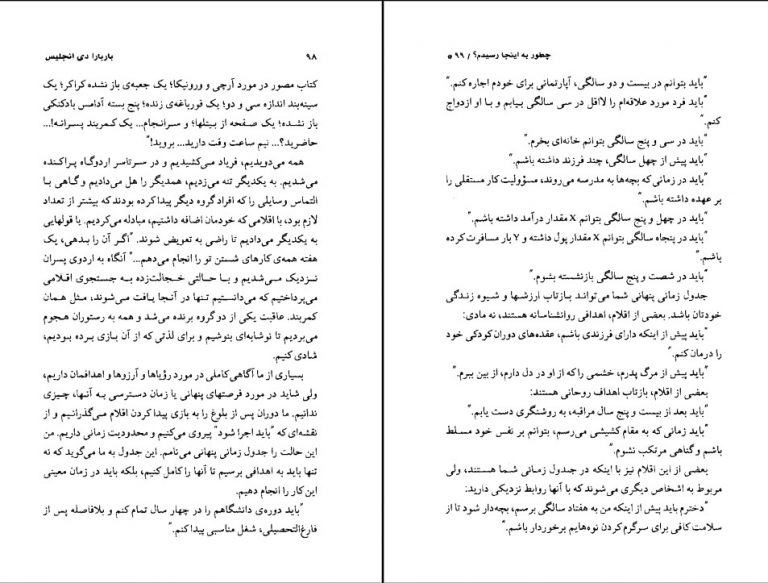 ۹۸ باربارا دی آنجلیس
کتاب مصور در مورد آرچی و ورونیکا؛ یک جعبه‌ی باز نشده کراکر؛ یک
سینه‌بند اندازه سی و دو؛ یک قورباغه‌ی زنده؛ پنج بسته آدامس بادکنکی
باز نشده؛ یک صفحه از بیتلها؛ و سرانجام... یک کمربند پسرانه!...
حاضرید؟... نیم ساعت وقت دارید... بروید!"
همه می‌دویدیم، فریاد می‌کشیدیم و در سرتاسر اردوگاه پراکنده
می‌شدیم. به یکدیگر تنه می‌زدیم، همدیگر را هل می‌دادیم و گاهی با
التماس وسایلی را که افراد گروه دیگر پیدا کرده بودند که بیشتر از تعداد
لازم بود، با اقلامی که خودمان اضافه داشتیم، مبادله می‌کردیم. یا قولهایی
به یکدیگر می‌دادیم تا راضی به تعویض شوند. "اگر آن را بدهی، یک
هفته همه‌ی کارهای شستن تو را انجام می‌دهم..." آنگاه به اردوی پسران
نزدیک می‌شدیم و با حالتی خجالت‌زده به جستجوی اقلامی
می‌پرداختیم که می‌دانستیم تنها در آنجا یافت می‌شوند، مثل همان
کمربند. عاقبت یکی از دو گروه برنده می‌شد و همه به رستوران هجوم
می‌بردیم تا نوشابه‌ای بنوشیم و برای لذتی که از آن بازی برده بودیم،
شادی کنیم.
بسیاری از ما آگاهی کاملی در مورد رؤیاها و آرزوها و اهدافمان داریم،
ولی شاید در مورد فرصتهای پنهانی یا زمان دسترسی به آنها، چیزی
ندانیم. ما دوران پس از بلوغ را به بازی پیدا کردن اقلام می‌گذرانیم و از
نقشه‌ای که "باید اجرا شود" پیروی می‌کنیم و محدودیت زمانی داریم. من
این حالت را جدول زمانی پنهانی می‌نامم. این جدول به ما می‌گوید که نه
تنها باید به اهدافی برسیم تا آنها را کامل کنیم، بلکه باید در زمان معینی
این کار را انجام دهیم.
"باید دوره‌ی دانشگاهم را در چهار سال تمام کنم و بلافاصله پس از
فارغ‌التحصیلی، شغل مناسبی پیدا کنم."
چطور به اینجا رسیدم؟ / ۹۹
"باید بتوانم در بیست و دو سالگی، آپارتمانی برای خودم اجاره کنم."
"باید فرد مورد علاقه‌ام را لااقل در سی سالگی بیابم و با او ازدواج
کنم."
"باید در سی و پنج سالگی بتوانم خانه‌ای بخرم."
"باید پیش از چهل سالگی، چند فرزند داشته باشم."
"باید در زمانی که بچه‌ها به مدرسه می‌روند، مسؤولیت کار مستقلی را
بر عهده داشته باشم."
"باید در چهل و پنج سالگی بتوانم X مقدار درآمد داشته باشم."
"باید در پنجاه سالگی بتوانم X مقدار پول داشته و Y بار مسافرت کرده
باشم."
"باید در شصت و پنج سالگی بازنشسته بشوم."
جدول زمانی پنهانی شما می‌تواند بازتاب ارزشها و شیوه زندگی
خودتان باشد. بعضی از اقلام، اهدافی روانشناسانه هستند، نه مادی:
"باید پیش از اینکه دارای فرزندی باشم، عقده‌های دوران کودکی خود
را درمان کنم."
"باید پیش از مرگ پدرم، خشمی را که از او در دل دارم، از بین ببرم."
بعضی از اقلام، بازتاب اهداف روحانی هستند:
"باید بعد از بیست و پنج سال مراقبه، به روشنگری دست یابم."
"باید زمانی که به مقام کشیشی می‌رسم، بتوانم بر نفس خود مسلط
باشم و گناهی مرتکب نشوم."
بعضی از این اقلام نیز با اینکه در جدول زمانی شما هستند، ولی
مربوط به اشخاص دیگری می‌شوند که با آنها روابط نزدیکی دارید:
"دخترم باید پیش از اینکه من به هفتاد سالگی برسم، بچه‌دار شود تا از
سلامت کافی برای سرگرم کردن نوه‌هایم برخوردار باشم."